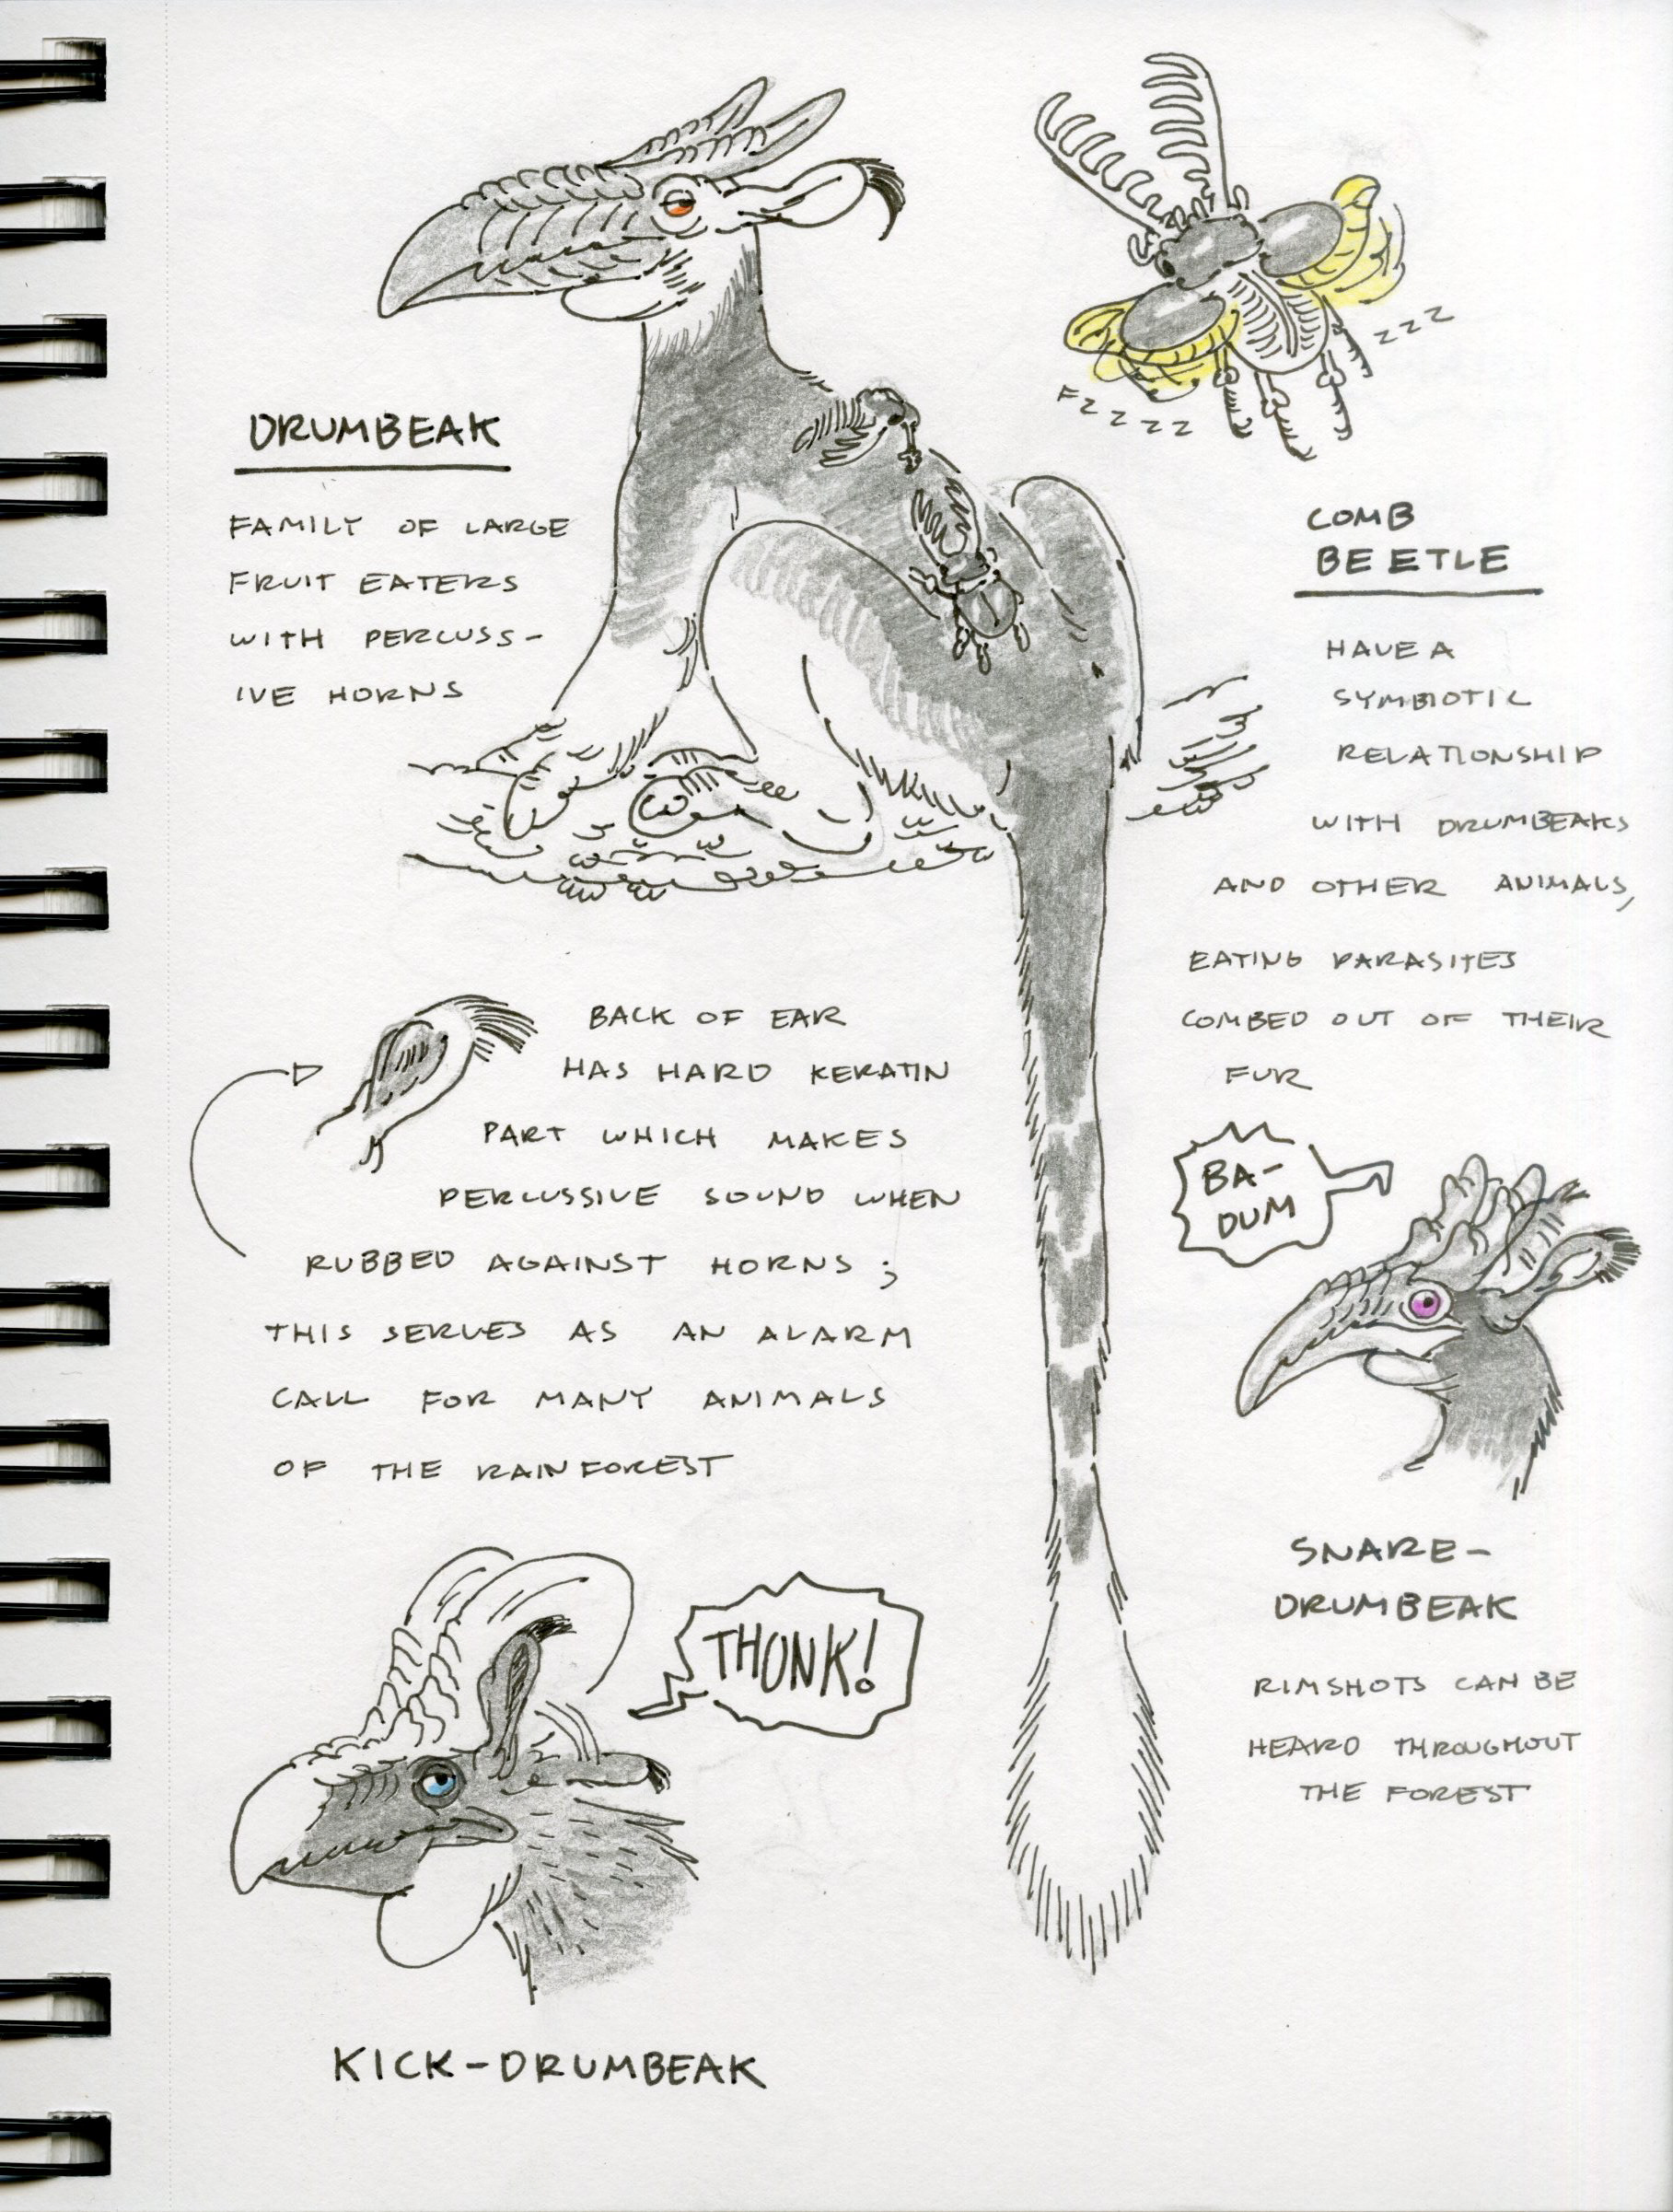 DRUMBEAK
FAMILY OF LARGE
FRUIT EATERS
WITH PERCUSS-
IVE HORNS
ZZZ
FZZZZ
COMB
BEETLE
HAVE A
SYMBIOTIC
RELATIONSHIP
WITH DRUMBEAKS
AND OTHER ANIMALS,
EATING PARASITES
COMBED OUT OF THEIR
FUR
BACK OF EAR
HAS HARD KERATIN
PART WHICH MAKES
PERCUSSIVE SOUND WHEN
RUBBED AGAINST HORNS;
THIS SERVES AS AN ALARM
CALL FOR MANY ANIMALS
OF THE RAINFOREST
BA-
DUM
SNARE-
DRUMBEAK
RIMSHOTS CAN BE
HEARD THROUGHOUT
THE FOREST
THONK!
KICK-DRUMBEAK